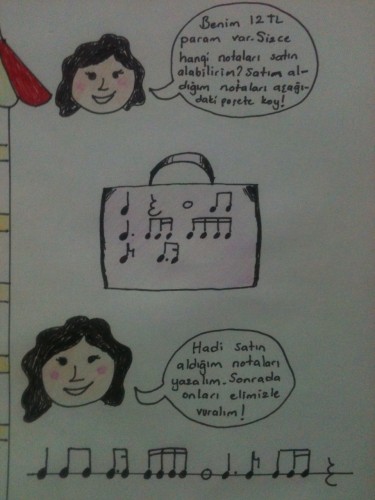 Benim 12 TL
param var. Sizce
hangi notaları satın
alabilirim? Satın al-
dığım notaları aşağı-
daki poşete koy!
Hadi satın
aldığım notaları
yazalım. Sonrada
onları elimizle
vuralım!